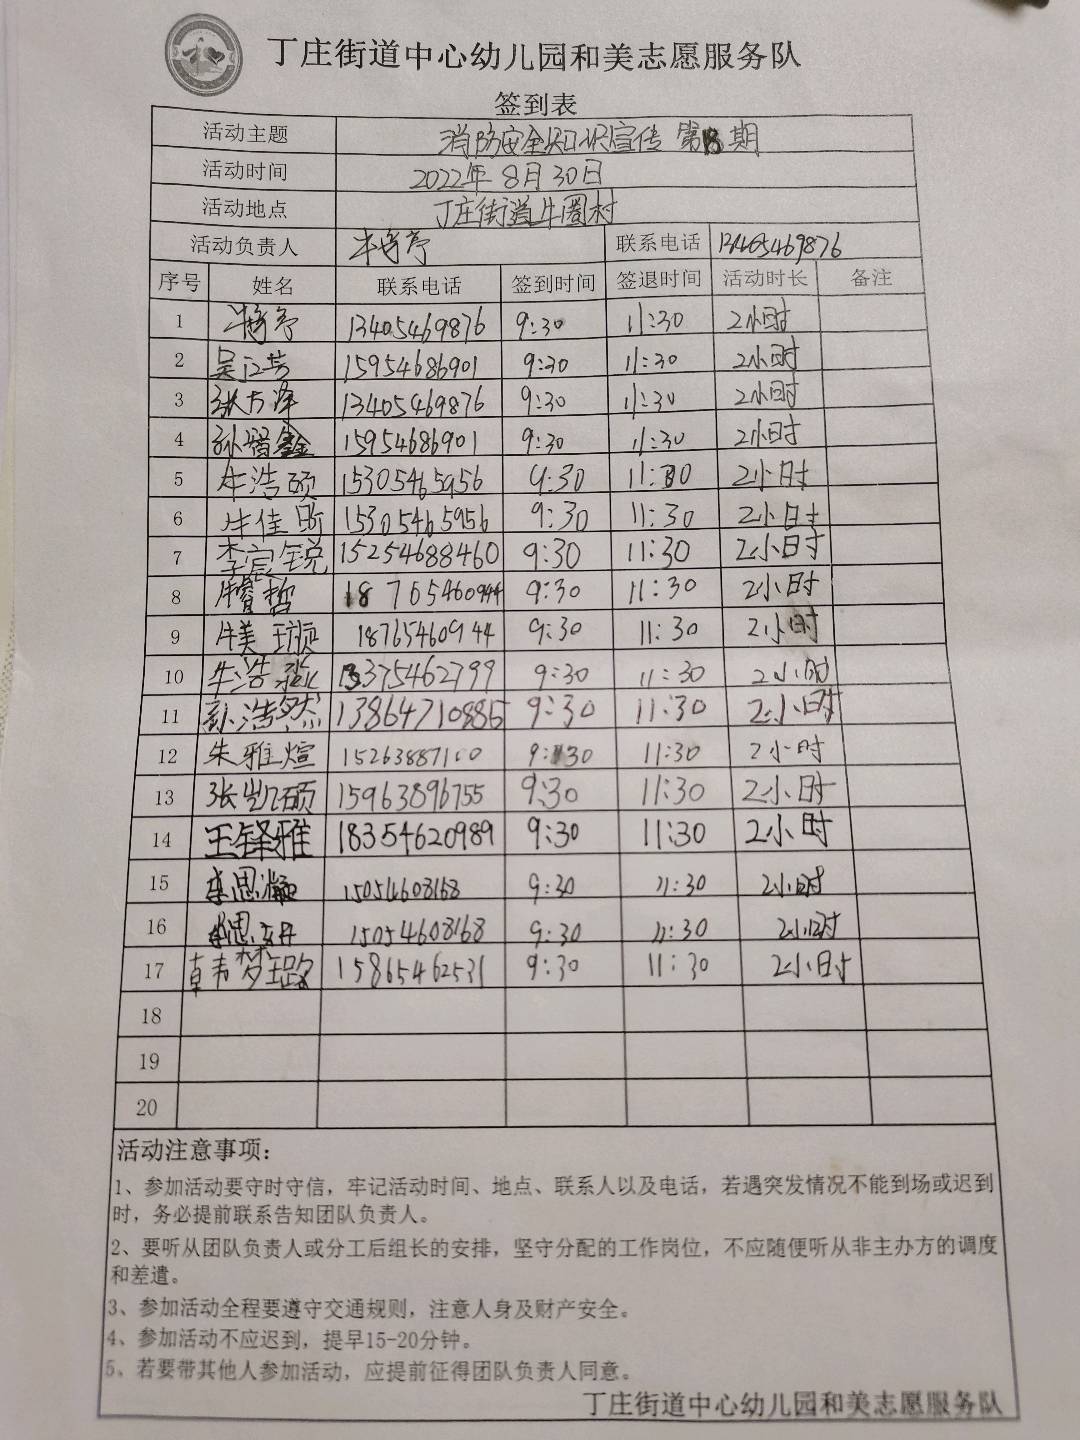 丁庄街道中心幼儿园和美志愿服务队
签到表
活动主题 消防安全知识宣传 第 期
活动时间 2022年8月30日
活动地点 丁庄街道牛圈村
活动负责人 联系电话 13405469876
序号 姓名 联系电话 签到时间 签退时间 活动时长 备注
1 13405469876 9:30 11:30 2小时
2 吴江芸 15954686901 9:30 11:30 2小时
3 13405469876 9:30 11:30 2小时
4 15954686901 9:30 11:30 2小时
5 牛浩硕 15305465956 9:30 11:30 2小时
6 牛佳昕 15305465956 9:30 11:30 2小时
7 李宸锐 15254688460 9:30 11:30 2小时
8 牛睿哲 18765460944 9:30 11:30 2小时
9 18765460944 9:30 11:30 2小时
10 牛浩 13375462799 9:30 11:30 2小时
11 孙浩然 13864710885 9:30 11:30 2小时
12 朱雅煊 15263887100 9:30 11:30 2小时
13 张凯硕 15963896755 9:30 11:30 2小时
14 王铎雅 18354620989 9:30 11:30 2小时
15 李思凝 15054608168 9:30 11:30 2小时
16 15054608168 9:30 11:30 2小时
17 15865462531 9:30 11:30 2小时
18
19
20
活动注意事项：
1、参加活动要守时守信，牢记活动时间、地点、联系人以及电话，若遇突发情况不能到场或迟到
时，务必提前联系告知团队负责人。
2、要听从团队负责人或分工后组长的安排，坚守分配的工作岗位，不应随便听从非主办方的调度
和差遣。
3、参加活动全程要遵守交通规则，注意人身及财产安全。
4、参加活动不应迟到，提早15-20分钟。
5、若要带其他人参加活动，应提前征得团队负责人同意。
丁庄街道中心幼儿园和美志愿服务队